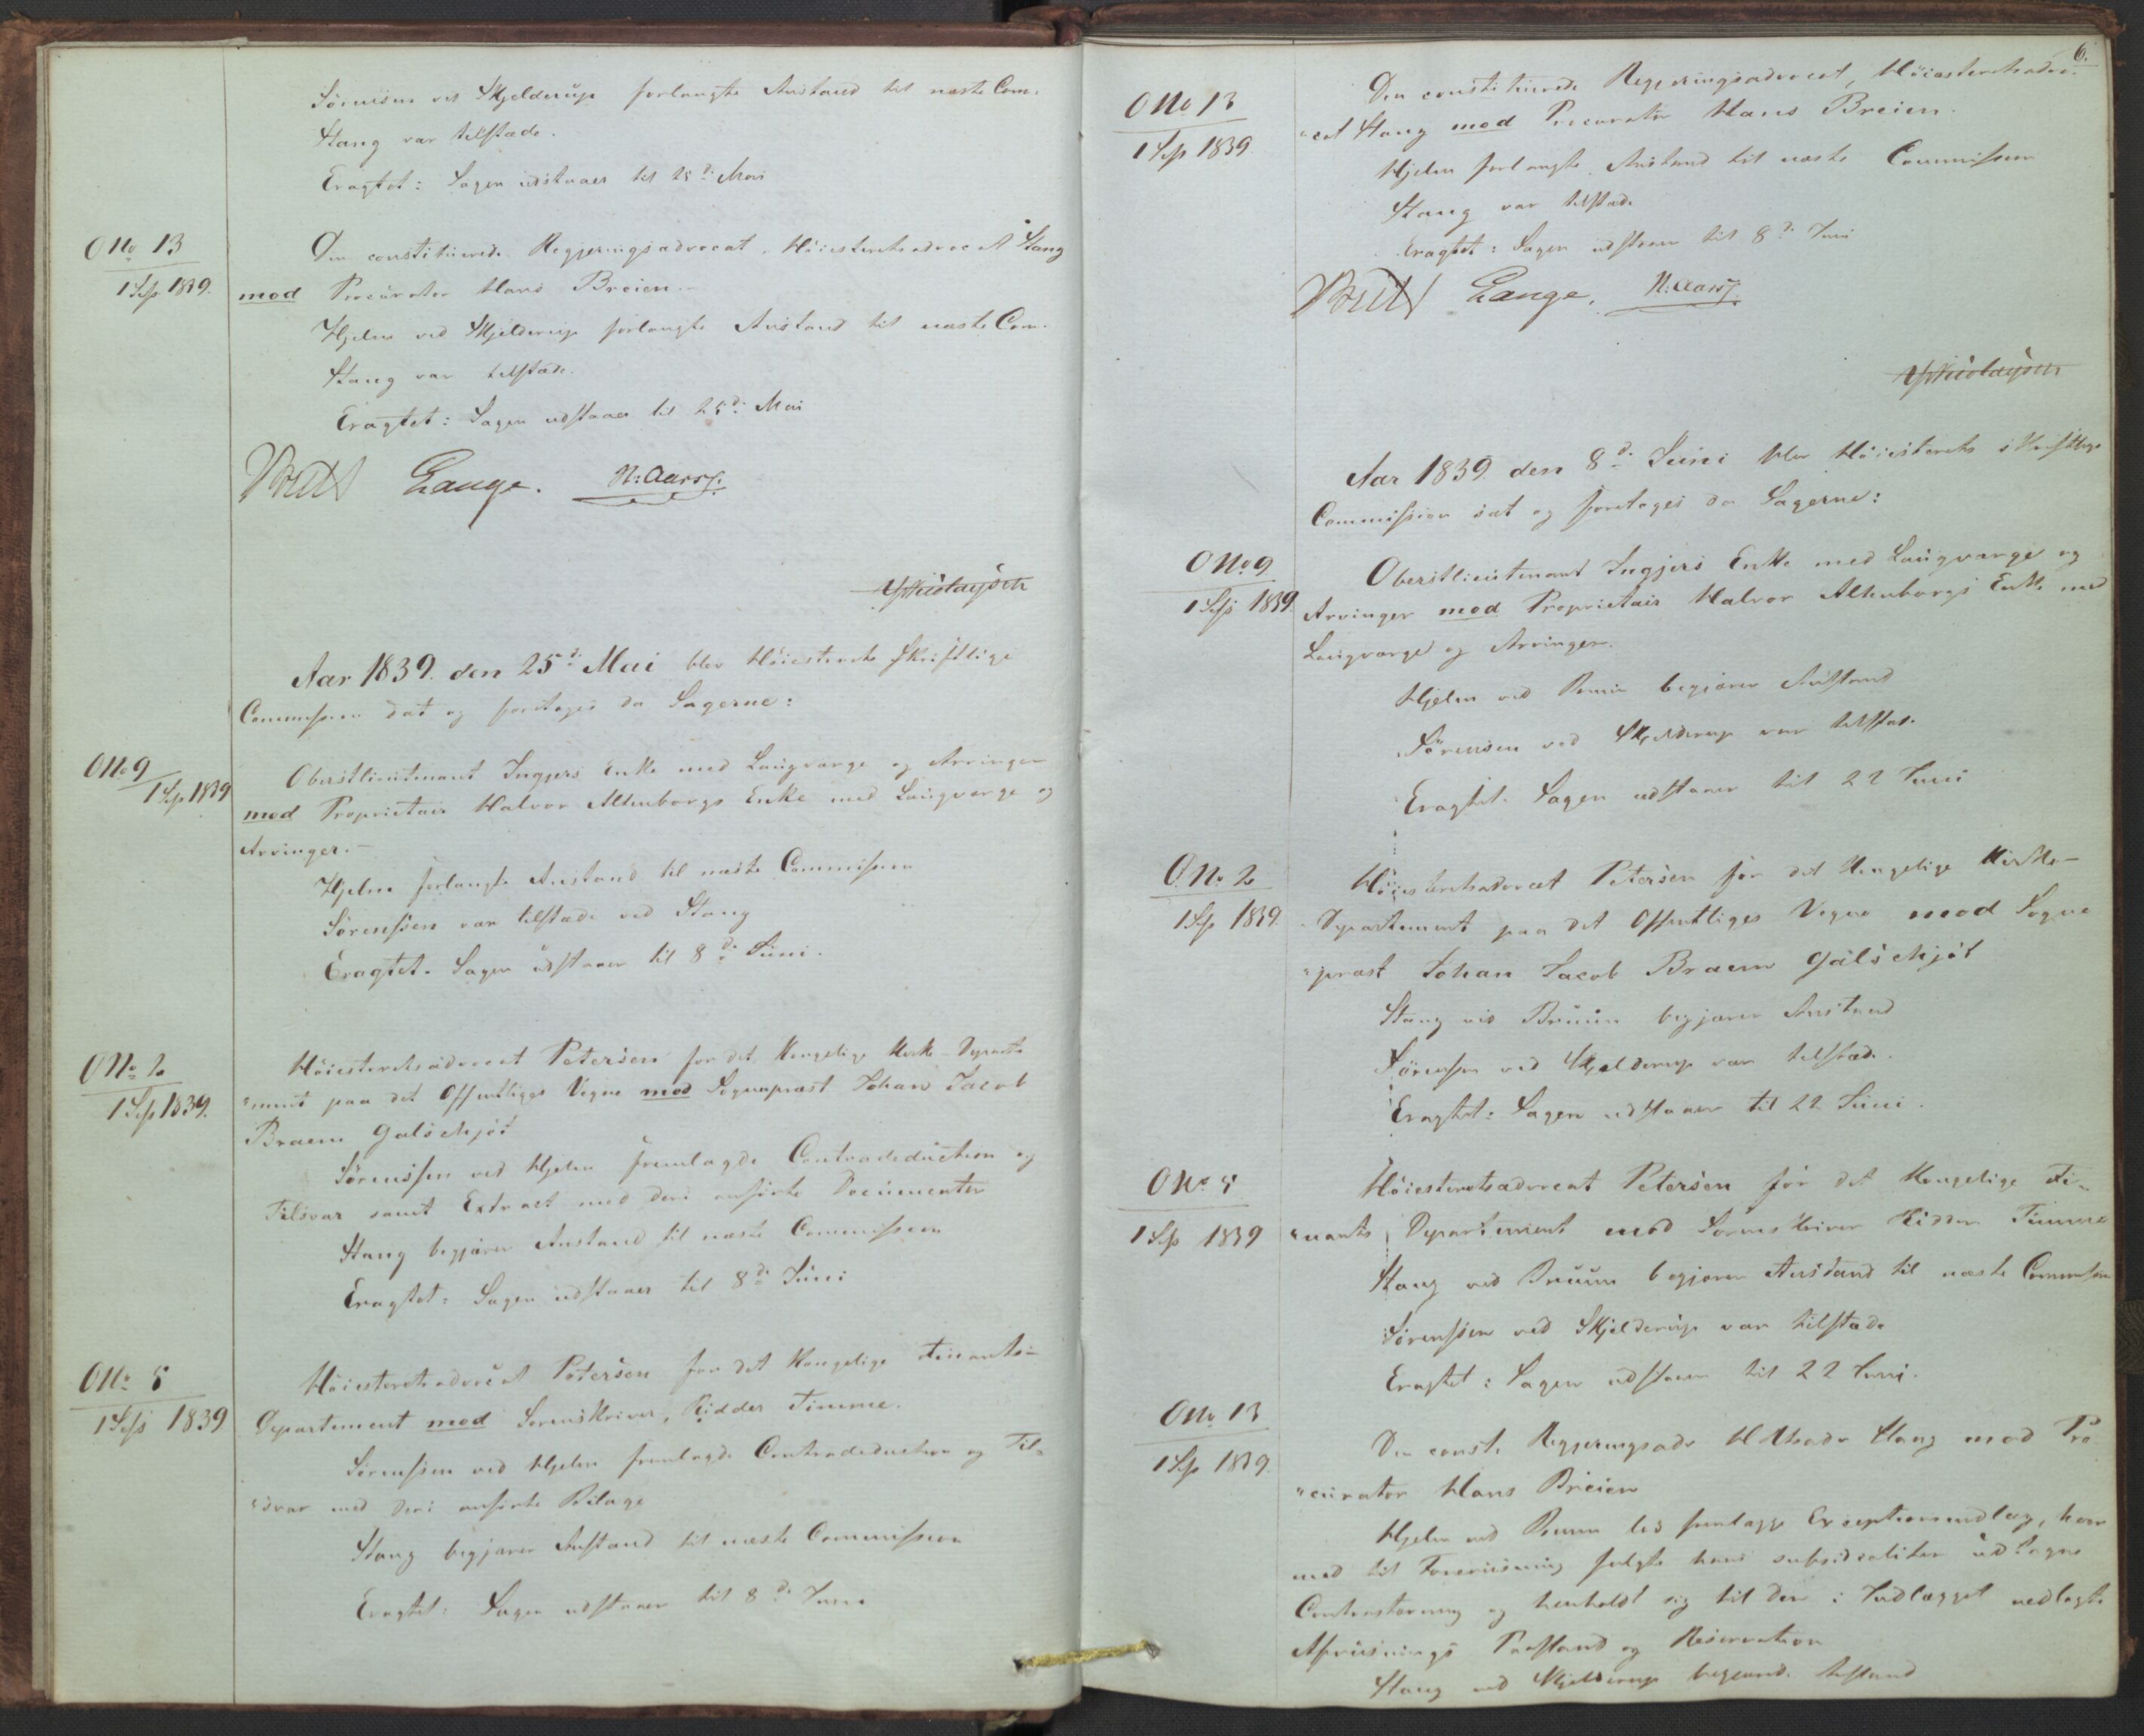 Sörensen ved Skjelderup forlangte Anstand til næste Com.
Stang var tilstæde.
Eragtet: Sagen udstaaer til 25d: Mai
O No 13
1 Sess 1839.
Den constituerede Regjeringsadvocat, Höiesteretsadvocat Stang
mod Procurator Hans Breien.
Hjelm ved Skjelderup forlangte Anstand til næste Com.
Stang var tilstæde.
Eragtet: Sagen udstaaer til 25d: Mai
Lange. N: Aars
Nicolaysen
Aar 1839. den 25d: Mai blev Höiesterets skriftlige
Commission sat og foretoges da Sagerne:
O No 9
1 Sess 1839
Oberstlieutenant Ingjers Enke med Laugværge og Arvinger
mod Proprietair Halvor Altenborgs Enke med Laugværge og
Arvinger.
Hjelm forlangte Anstand til næste Commission
Sörenssen var tilstæde ved Stang
Eragtet. Sagen udstaaer til 8d: Juni.
O No 2
1 Sess 1839.
Höiesteretsadvocat Petersen for det Kongelige Kirke-Departe
"ment paa det Offentliges Vegne mod Sognepræst Johan Jacob
Braem Galschjöt
Sörenssen ved Hjelm fremlagde Contradeduction og
Tilsvar samt Extract med deri anførte Documenter
Stang begjærer Anstand til næste Commission
Eragtet: Sagen udstaaer til 8d: Juni
O No 5
1 Sess 1839
Höiesteretsadvocat Petersen for det Kongelige Finants-
Departement mod Sorenskriver, Ridder Timme.
Sörenssen ved Hjelm fremlagde Contradeduction og Til-
"svar med deri anförte Bilage
Stang begjærer Anstand til næste Commission
Eragtet: Sagen udstaaer til 8d: Juni
6.
O No 13
1 Sess 1839.
Den constituerede Regjeringsadvocat, Höiesteretsadvo-
"cat Stang mod Procurator Hans Breien.
Hjelm forlangte Anstand til næste Commission
Stang var tilstæde
Eragtet: Sagen udstaaer til 8d: Juni
Lange. N: Aars
Nicolaysen
Aar 1839. den 8d: Juni blev Höiesterets skriftlige
Commission sat og foretoges da Sagerne:
O No 9
1 Sess 1839.
Oberstlieutenant Ingjers Enke med Laugværge og
Arvinger mod Proprietair Halvor Altenborgs Enke med
Laugværge og Arvinger.
Hjelm ved Bruun begjærer Anstand
Sörensen ved Skjelderup var tilstæde.
Eragtet. Sagen udstaaer til 22 Juni
O. No 2
1 Sess 1839.
Höiesteretsadvocat Petersen for det Kongelige Kirke-
Departement paa det Offentliges Vegne mod Sogne
"præst Johan Jacob Braem Galschjöt
Stang ved Bruun begjærer Anstand
Sörenssen ved Skjelderup var tilstæde.
Eragtet: Sagen udstaaer til 22 Juni.
O No 5
1 Sess 1839
Höiesteretsadvocat Petersen for det Kongelige Fi-
"nants Departement mod Sorenskriver Ridder Timme
Stang ved Bruun begjærer Anstand til næste Commission
Sörenssen ved Skjelderup var tilstæde
Eragtet: Sagen udstaaer til 22 Juni.
O No 13
1 Sess 1839.
Den const. Regjeringsadv. Stang mod Pro
"curator Hans Breien
Hjelm ved Bruun lod fremlægge Exceptionsindlæg, hvor
med til Foreviisning fulgte hans subsidialiter udtagne
Contrastævning og henholdt sig til den i Indlægget nedlagte
Afviisnings Paastand og Reservation
Stang ved Skjelderup begjærede Anstand